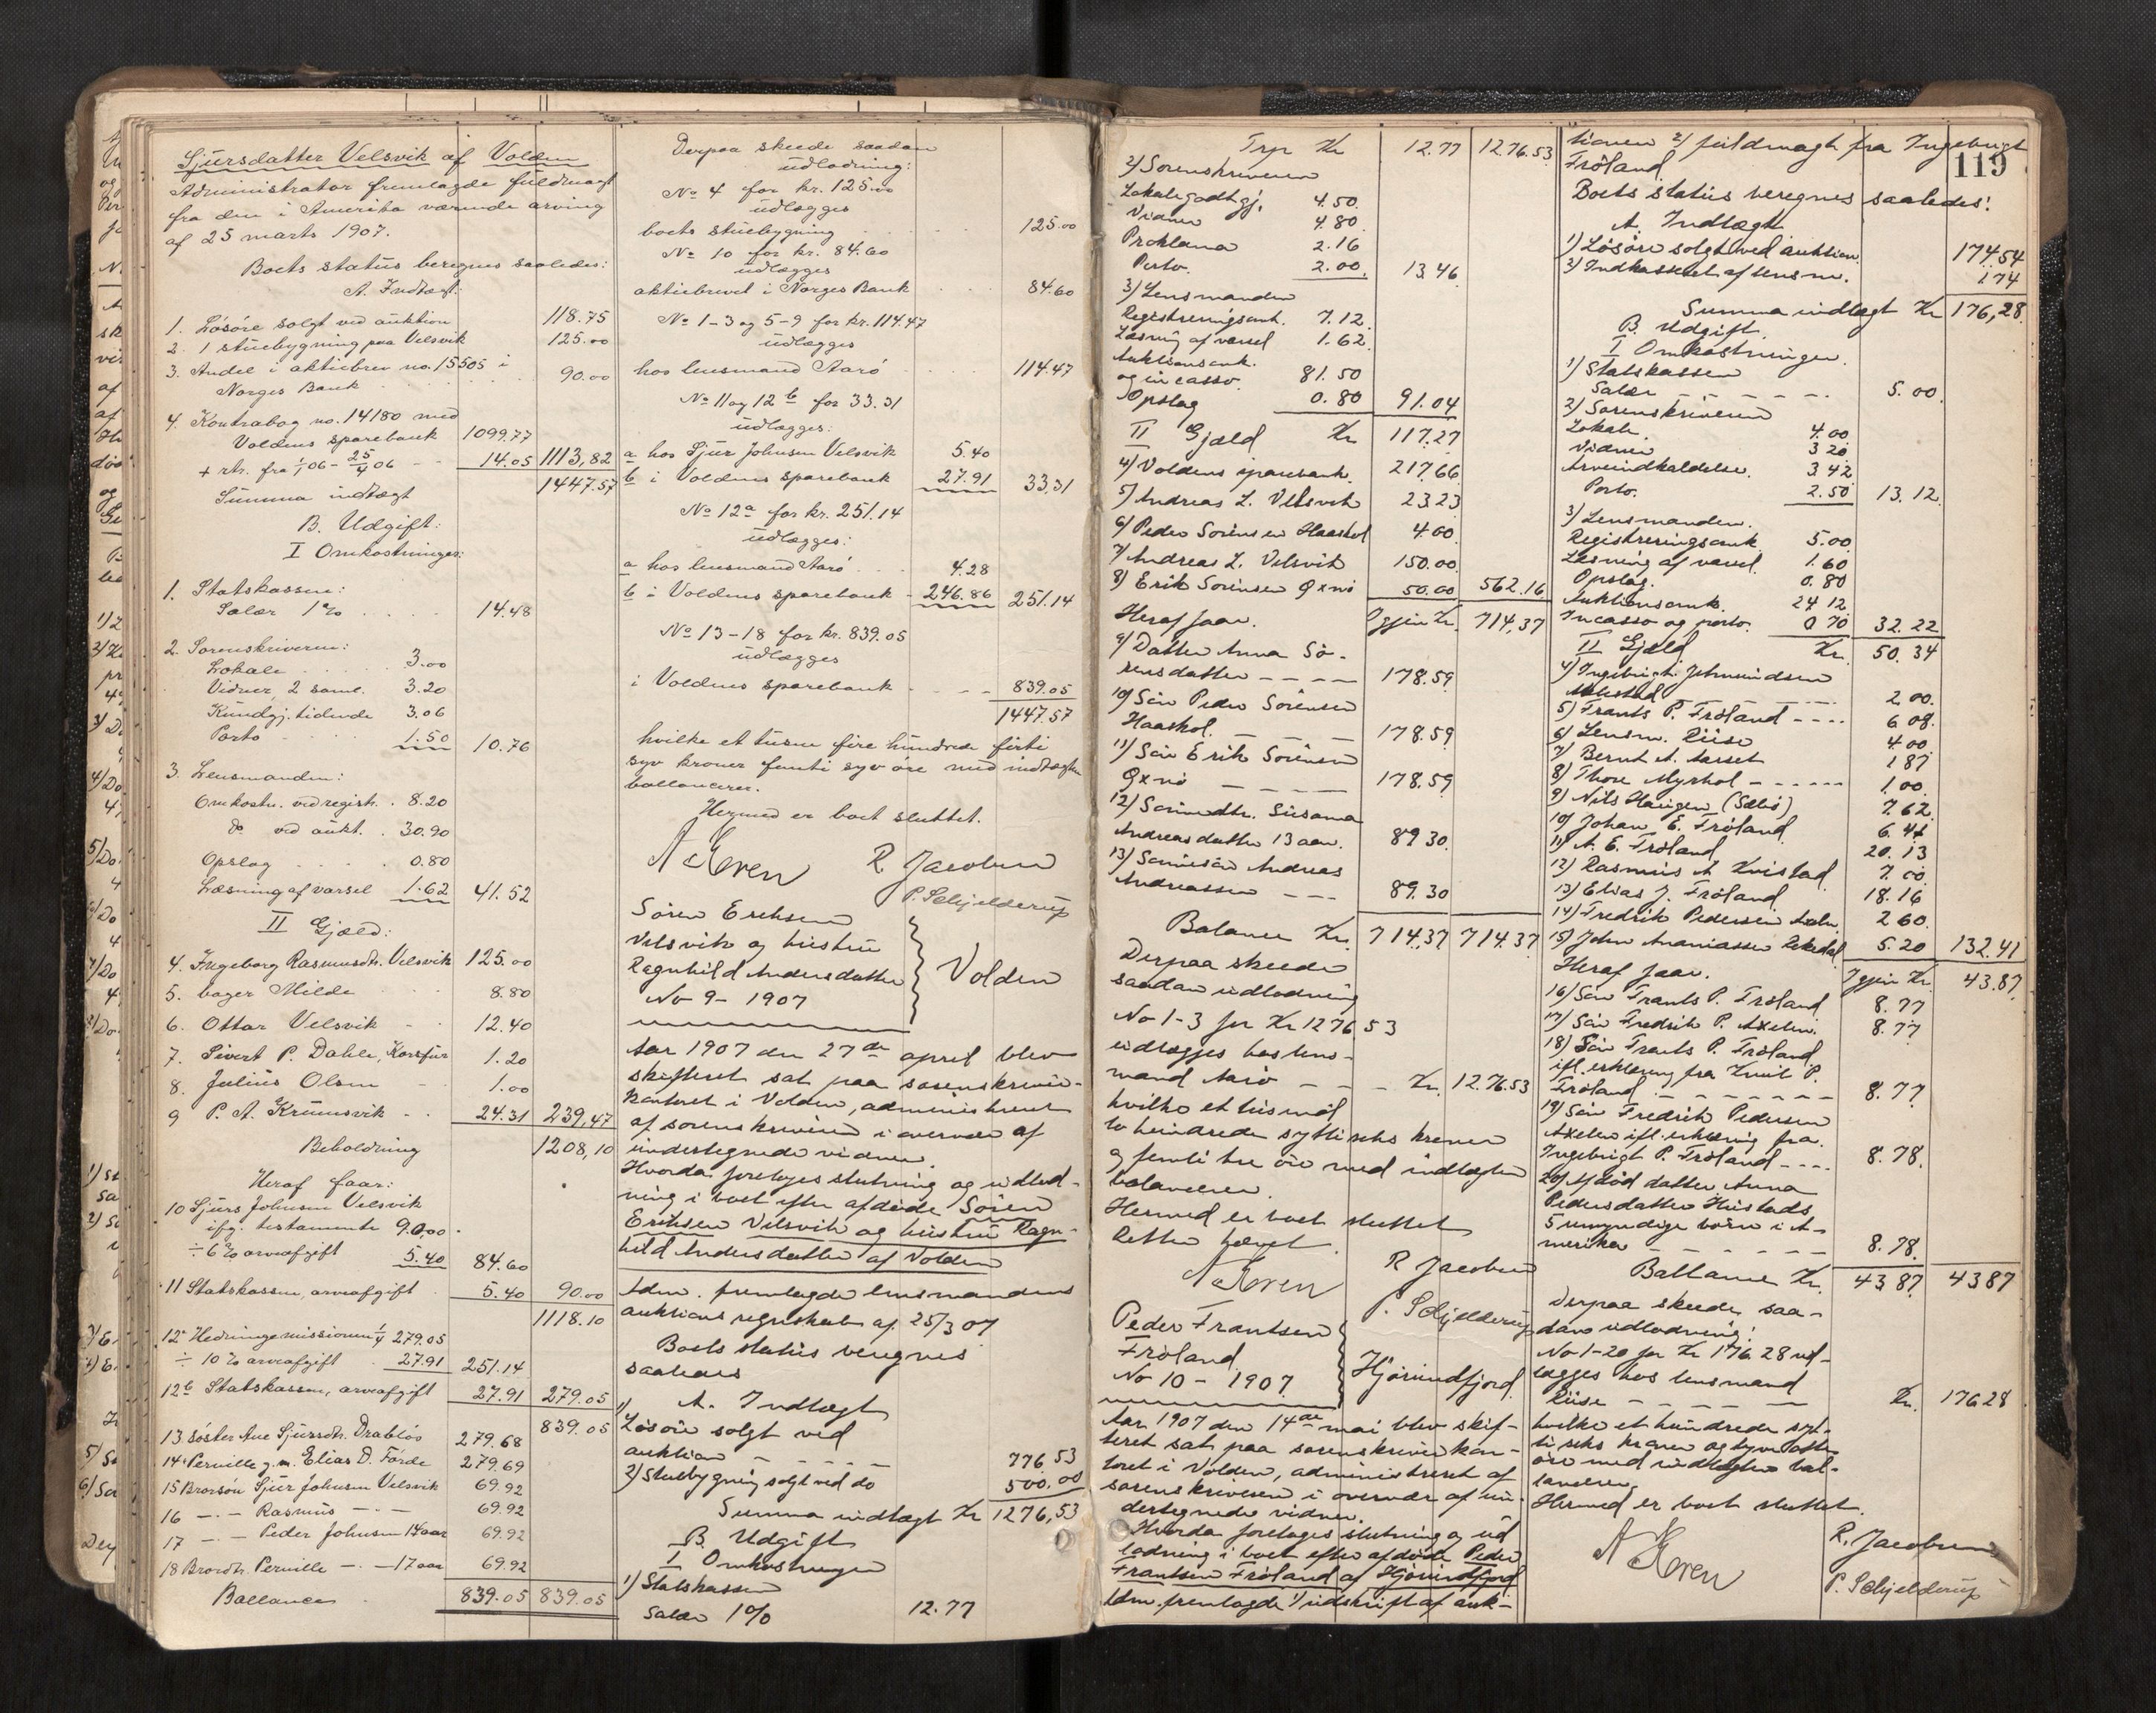 Sjursdatter Velsvik af Volden
Administrator fremlagde fuldmagt
fra den i Amerika værende arving
af 25 marts 1907.
Boets status beregnes saaledes:
A. Indtægt:
1. Løsøre solgt ved auktion 118.75
2. 1 stuebygning paa Velsvik 125.00
3. Andel i aktiebrev no. 15505 i
Norges Bank 90.00
4. Kontrabog no. 14180 med
Voldens sparebank 1099.77
+ rtr. fra 1/1 06 - 25/4 06 14.05 1113,82
Summa indtægt 1447.57
B. Udgift:
I Omkostninger:
1. Statskassen:
Salær 1% 14.48
2. Sorenskriveren:
Lokale 3.00
Vidner, 2 saml. 3.20
Kundgj. tidende 3.06
Porto 1.50 10.76
3. Lensmanden:
Omkostn. ved registr. 8.20
do ved aukt. 30.90
Opslag 0.80
Læsning af varsel 1.62 41.52
II Gjæld:
4. Ingeborg Rasmusdtr. Velsvik 125.00
5. bager Milde 8.80
6. Ottar Velsvik 12.40
7. Sivert P. Dahle, 1.20
8. Julius Olsen 1.00
9 P. A. Krumsvik 24.31 239,47
Beholdning 1208,10
Heraf faar:
10 Sjurs Johnsen Velsvik
ifg. testamente 90,00
÷ 6% arveafgift 5.40 84.60
11 Statskassen, arveafgift 5.40 90.00
1118.10
12a Hedningemissionen 1/4 279.05
÷ 10% arveafgift 27.91 251.14
12b Statskassen, arveafgift 27.91 279.05
839.05
13 Søster Ane Sjursdtr. Drabløs 279.68
14 Pernille g.m. Elias D. Førde 279.69
15 Brorsøn Sjur Johnsen Velsvik 69.92
16 -"- Rasmus -"- 69.92
17 -"- Peder Johnsen 14 aar 69.92
18 Brordtr. Pernille -"- 17 aar 69.92
Ballance 839.05 839.05
Derpaa skeede saadan
udlodning:
No 4 for kr. 125.00
udlægges
boets stuebygning 125.00
No 10 for kr. 84.60
udlægges
aktiebrevet i Norges Bank 84.60
No 1-3 og 5-9 for kr. 114.47
udlægges
hos lensmand Aarø 114.47
No 11 og 12 b for 33.31
udlægges:
a hos Sjur Johnsen Velsvik 5.40
b i Voldens sparebank 27.91 33,31
No 12a for kr. 251.14
udlægges:
a hos lensmand Aarø 4.28
b i Voldens sparebank 246.86 251.14
No 13-18 for kr. 839.05
udlægges
i Voldens sparebank 839.05
1447.57
hvilke et tusen fire hundrede firti
syv kroner femti syv øre med indtægten
ballancerer.
Hermed er boet sluttet.
N Koren R. Jacobsen
P. Schjelderup
Søren Eriksen
Velsvik og hustru
Ragnhild Andersdatter
No 9 - 1907
Volden
Aar 1907 den 27de april blev
skifteret sat paa sorenskriver-
kontoret i Volden, administreret
af sorenskriveren i overvær af
undertegnede vidner.
Hvorda foretoges slutning og udlod-
ning i boet efter afdøde Søren
Eriksen Velsvik og hustru Ragn-
hild Andersdatter af Volden
Adm. fremlagde lensmandens
auktions regnskab af 25/3 07
Boets status beregnes
saaledes
A. Indtægt
1) Løsøre solgt ved
auktion 776.53
2) Stuebygning solgt ved do 500.00
Summa indtægt Kr 1276,53
B. Udgift
I Omkostninger
1) Statskassen
Salær 1% 12.77
119
Trp Kr 12.77 1276.53
2) Sorenskriveren
Lokalegodtgj. 4.50
Vidner 4.80
Proklama 2.16
Porto. 2.00 13.46
3) Lensmanden
Registreringsomk. 7.12
Læsning af varsel 1.62
Auktionsomk.
og incasso. 81.50
Opslag 0.80 91.04
II Gjæld Kr 117.27
4) Voldens sparebank. 217.66
5) Andreas L. Velsvik 23.23
6) Peder Sørensen Haaskol 4.00
7) Andreas L. Velsvik 150.00
8) Erik Sørensen Øxnø 50.00 562.16
Heraf faar. Igjen Kr. 714,37
9) Datter Anna Sø-
rensdatter 178.59
10) Søn Peder Sørensen
Haaskol. 178.59
11) Søn Erik Sørensen
Øxnø 178.59
12) Sønnedtr. Susanna
Andreasdatter 13 aar. 89.30
13) Sønnesøn Andreas
Andreassen 89.30
Balance Kr. 714.37 714.37
Derpaa skeede
saadan udlodning
No 1-3 for Kr 1276 53
udlægges hos lens-
mand Aarø Kr. 1276.53
hvilke et tusind
to hundrede sytti seks kroner
og femti tre øre med indtægten
balancerer.
Hermed er boet sluttet
Retten hævet.
N Koren R Jacobsen
P. Schjelderup
Peder Frantsen
Frøland
No 10 - 1907
Hjørundfjord
Aar 1907 den 14de mai blev skif-
teret sat paa sorenskriverkon-
toret i Volden, administreret af
sorenskriveren i overvær af un-
dertegnede vidner.
Hvorda foretoges slutning og ud
lodning i boet efter afdøde Peder
Frantsen Frøland af Hjørundfjord
Adm. fremlagde 1) udskrift af auk-
tionen 2) fuldmagt fra Ingebrigt
Frøland.
Boets status beregnes saaledes:
A. Indtægt
1) Løsøre solgt ved auktion 174.54
2) Indkasseret af lensm. 1.74
Summa indtægt Kr 176,28
B. Udgift.
I Omkostninger.
1) Statskassen
Salær 5.00
2) Sorenskriveren
Lokale. 4.00
Vidner 3.20
Arveindkaldelse. 3.42
Porto. 2.50 13.12
3) Lensmanden.
Registreringsomk. 5.00
Læsning af varsel. 1.60
Opslag. 0.80
Auktionsomk. 24.12
Incasso og porto. 0.70 32.22
II Gjæld Kr. 50.34
4) Ingebrigt Johnsen
2.00
5) Frants P. Frøland 6.08
6) Lensm. Riise 4.00
7) Bernt A. Aarset 1.87
8) Thore Myrhol 1.00
9) Nils Haugen (Sæbø) 7.62
10) Johan E. Frøland 6.44
11) A. E. Frøland 20.13
12) Rasmus A Kvistad 7.00
13) Elias J. Frøland. 18.16
14) Fredrik Pedersen Axeln. 2.60
15) John Ananiassen 5.20 132.41
Heraf faar. Igjen Kr. 43.87
16) Søn Frants P. Frøland 8.77
17) Søn Fredrik P. Axeln. 8.77
18) Søn Frants P. Frøland
ifl. erklæring fra Knut P.
Frøland 8.77
19) Søn Fredrik Pedersen
Axelen ifl. erklæring fra
Ingebrigt P. Frøland 8.78.
20) Afdød datter Anna
Pedersdatter Hustads
5 umyndige børn i A-
merika 8.78.
Ballance Kr. 43 87 43 87
Derpaa skeede saa-
dan udlodning:
No 1-20 for Kr 176 28 ud-
lægges hos lensmand
Riise Kr. 176 28
hvilke et hundrede syt-
ti seks kroner og tyve otte
øre med indtægten bal-
lancerer.
Hermed er boet sluttet.
N Koren R. Jacobsen
P. Schjelderup